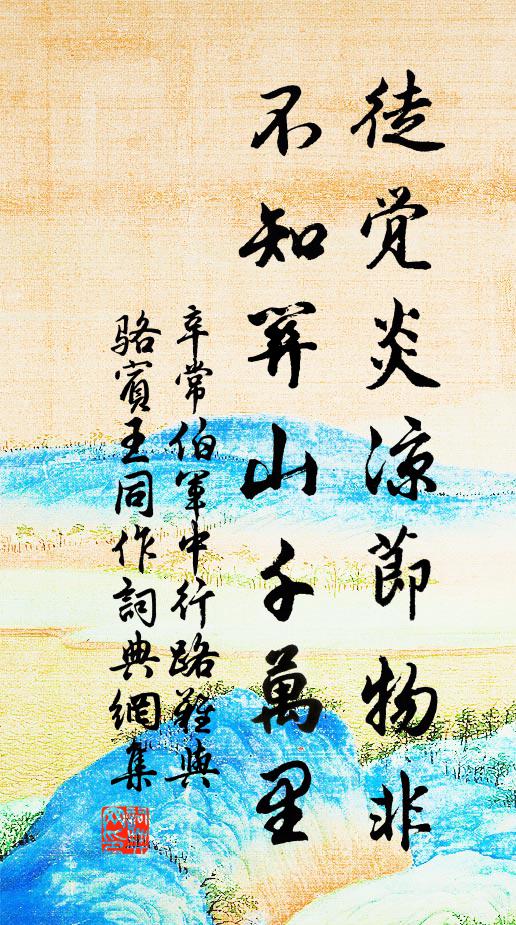 徒覺炎涼節物非
不知關山千萬里
辛常伯軍中行路難與
駱賓王同作詞典網集